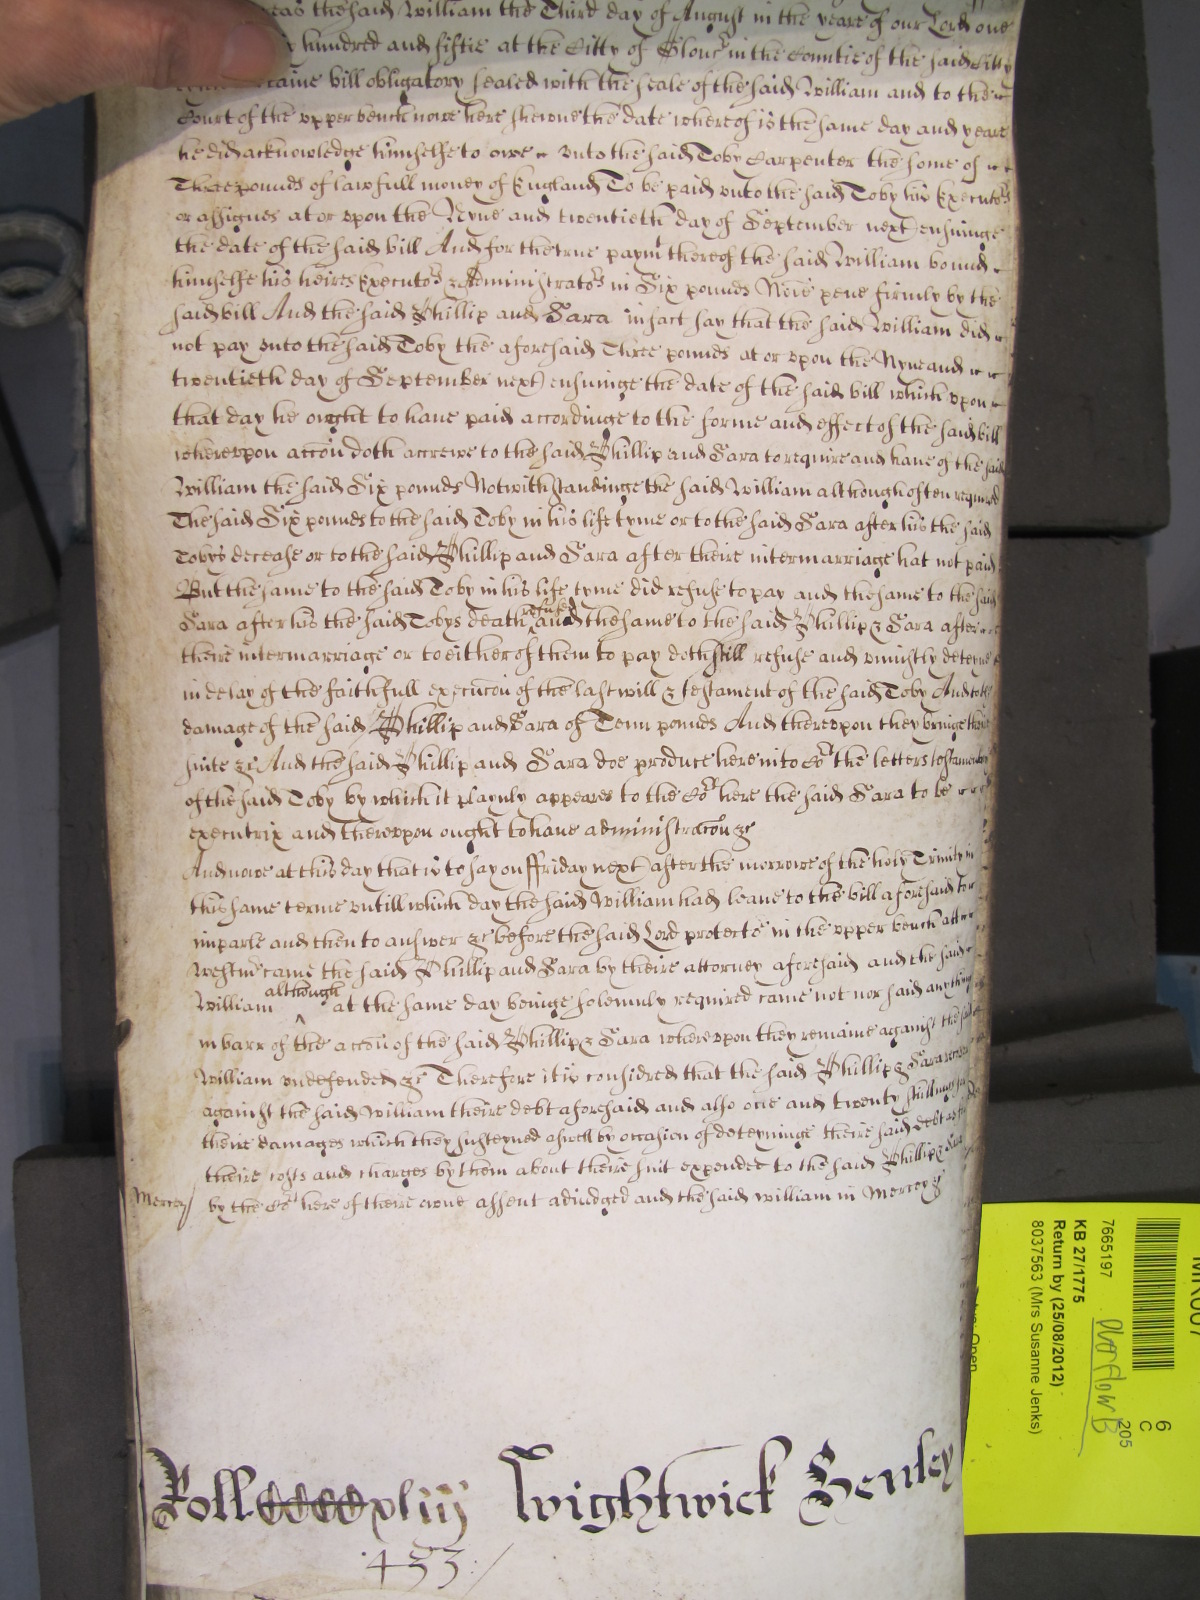 the said William the Third day of August in the yeare of our Lord one
hundred and fiftie at the Citty of Glouc in the Countie of the said Citty
bill obligatory sealed with the seale of the said William and to the
Court of the upper bench nowe here shewne the date whereof is the same day and yeare
he did acknowledge himselfe to owe unto the said Toby Carpenter the some of
Three pounds of lawfull money of England To be paid unto the said Toby his Executors
or assignes at or upon the Nyne and twentieth day of September next ensuinge
the date of the said bill And for the true paymt thereof the said William bound
himselfe his heires Executors & Administrators in Six pounds Noie pene firmly by the
said bill And the said Phillip and Sara in fact say that the said William did
not pay unto the said Toby the aforesaid Three pounds at or upon the Nyne and
twentieth day of September next ensuinge the date of the said bill which upon
that day he ought to have paid accordinge to the forme and effect of the said bill
whereupon accon doth accrewe to the said Phillip and Sara to require and have of the said
William the said Six pounds Notwithstandinge the said William although often required
The said Six pounds to the said Toby in his life tyme or to the said Sara after his the said
Tobys decease or to the said Phillip and Sara after theire intermarriage hat not paid
But the same to the said Toby in his life tyme did refuse to pay and the same to the said
Sara after his the said Tobys death refused and the same to the said Phillip & Sara after
theire intermarriage or to either of them to pay doth still refuse and uniustly deteyne
in delay of the faithfull execucon of the last will & testament of the said Toby And to the
damage of the said Phillip and Sara of Tenn pounds And thereupon they bringe their
suite &c And the said Phillip and Sara doe produce here into Cort the letters testamentary
of the said Toby by which it playnly appeares to the Cort here the said Sara to be
executrix and thereupon ought to have administracon &c
And nowe at this day that is to say on ffriday next after the morrowe of the holy Trinity in
this same terme untill which day the said William had leave to the bill aforesaid to
imparle and then to answer &c before the said Lord protector in the upper bench att
Westmr came the said Phillip and Sara by theire attorney aforesaid and the said
William although at the same day beinge solemnly required came not nor said anything
in barr of the accon of the said Phillip & Sara whereupon they remaine against the said
William undefended &c Therefore it is considred that the said Phillip & Sara recover
against the said William theire debt aforesaid and also one and twenty shillings for
theire damages which they susteyned aswell by occasion of deteyninge theire said debt as for
theire costs and charges by them about theire suit expended to the said Phillip & Sara
Mercey by the Cort here of theire owne assent adiudged and the said William in Mercey &c
Roll CCCCxliij Wightwick Henley
433
7665197
KB 27/1775
Return by (25/08/2012)
8037563 (Mrs Susanne Jenks)
Overflow B
205
6
C
Open